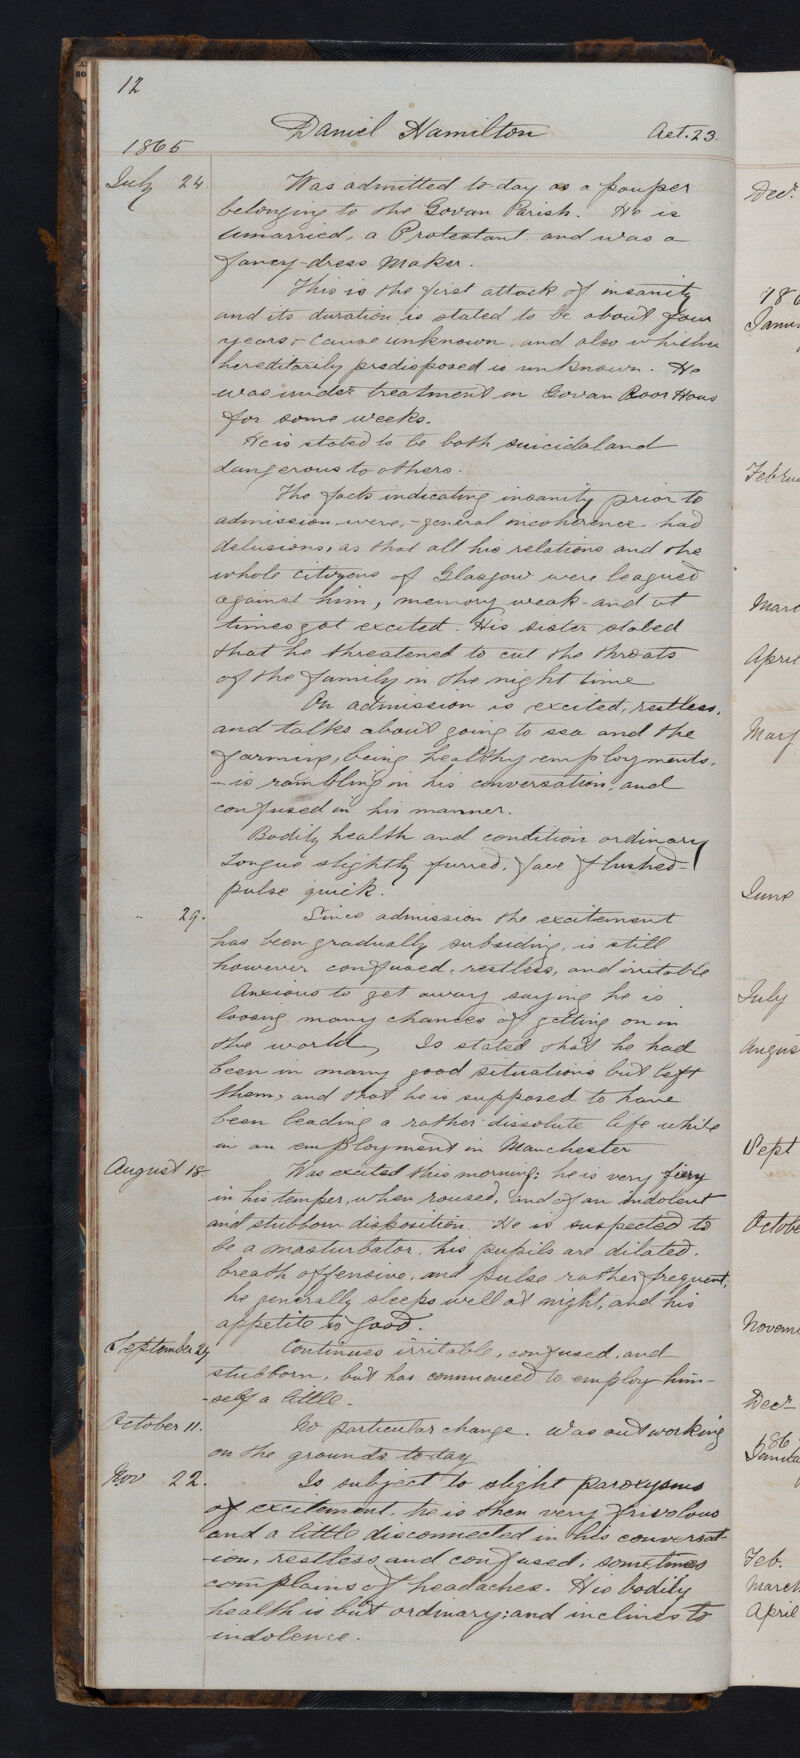 12
Daniel Hamilton Aet. 23.
1865
July 24. Was admitted to day as a pauper
belonging to the Govan Parish. He is
unmarried, a Protestant and was a
fancy-dress Maker.
This is the first attack of insanity
and its duration is stated to be about four
years - cause unknown, and also whither
hereditarily predisposed is unknown. He
was under treatment in Govan Poor Hous
for some weeks.
He is stated to be both suicidal and
dangerous to others.
The facts indicating insanity prior to
admission were, - general incoherence - had
delusions, as that all his relations and the
whole citizens of Glasgow were leagued
against him, memory weak and at
times got excited. His sister stated
that he threatened to cut the throats
of the family in the night time
On admission is excited, restless,
and talks about going to sea and the
farming, being healthy employments,
- is rambling in his conversation, and
confused in his manner.
Bodily health and condition ordinary
Tongue slightly furred, face flushed -
pulse quick.
" 29. Since admission the excitement
has been gradually subsiding, is still
however confused, restless, and irritable
Anxious to get away saying he is
loosing many chances of getting on in
the world, Is stated that he had
been in many good situations but left
them, and that he is supposed to have
been leading a rather dissolute life while
in an employment in Manchester
August 18. Was excited this morning; he is very fiery
in his temper, when roused, and of an indolent
and stubborn disposition. He is suspected to
be a masturbator, his pupils are dilated.
breath offensive, and pulse rather frequent,
he generally sleeps well at night, and his
appetite is good.
September 29 Continues irritable, confused, and
stubborn, but has commenced to employ him-
-self a little.
October 11. No particular change. Was out working
on the grounds to-day
Nov 22. Is subject to slight paroxysms
of excitement, he is then very frivolous
and a little disconnected in his conversat-
-ion, restless and confused, sometimes
complains of headaches. His bodily
health is but ordinary; and inclines to
indolence.
Decr
186
Janu
Febru
Marc
April
May
June
July
Augus
Sept
Octobe
Novem
Decr
186
Janua
Feb.
March
April